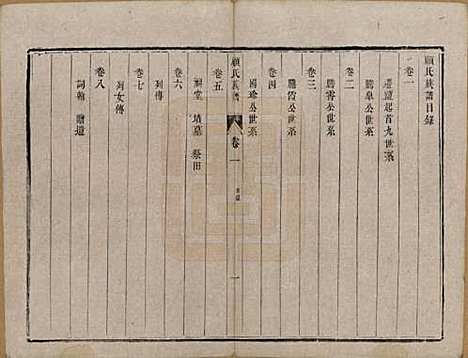 顧氏族譜目錄
卷一
遷 起首九世系
卷二
勝皐公世系
卷三
勝霄公世系
卷四
勝霞公世系
國 公世系
顧氏族譜 卷一 目錄 一
卷五
祠堂 墳墓 祭田
卷六
列傳
卷七
列女傳
卷八
詞翰 贈遺